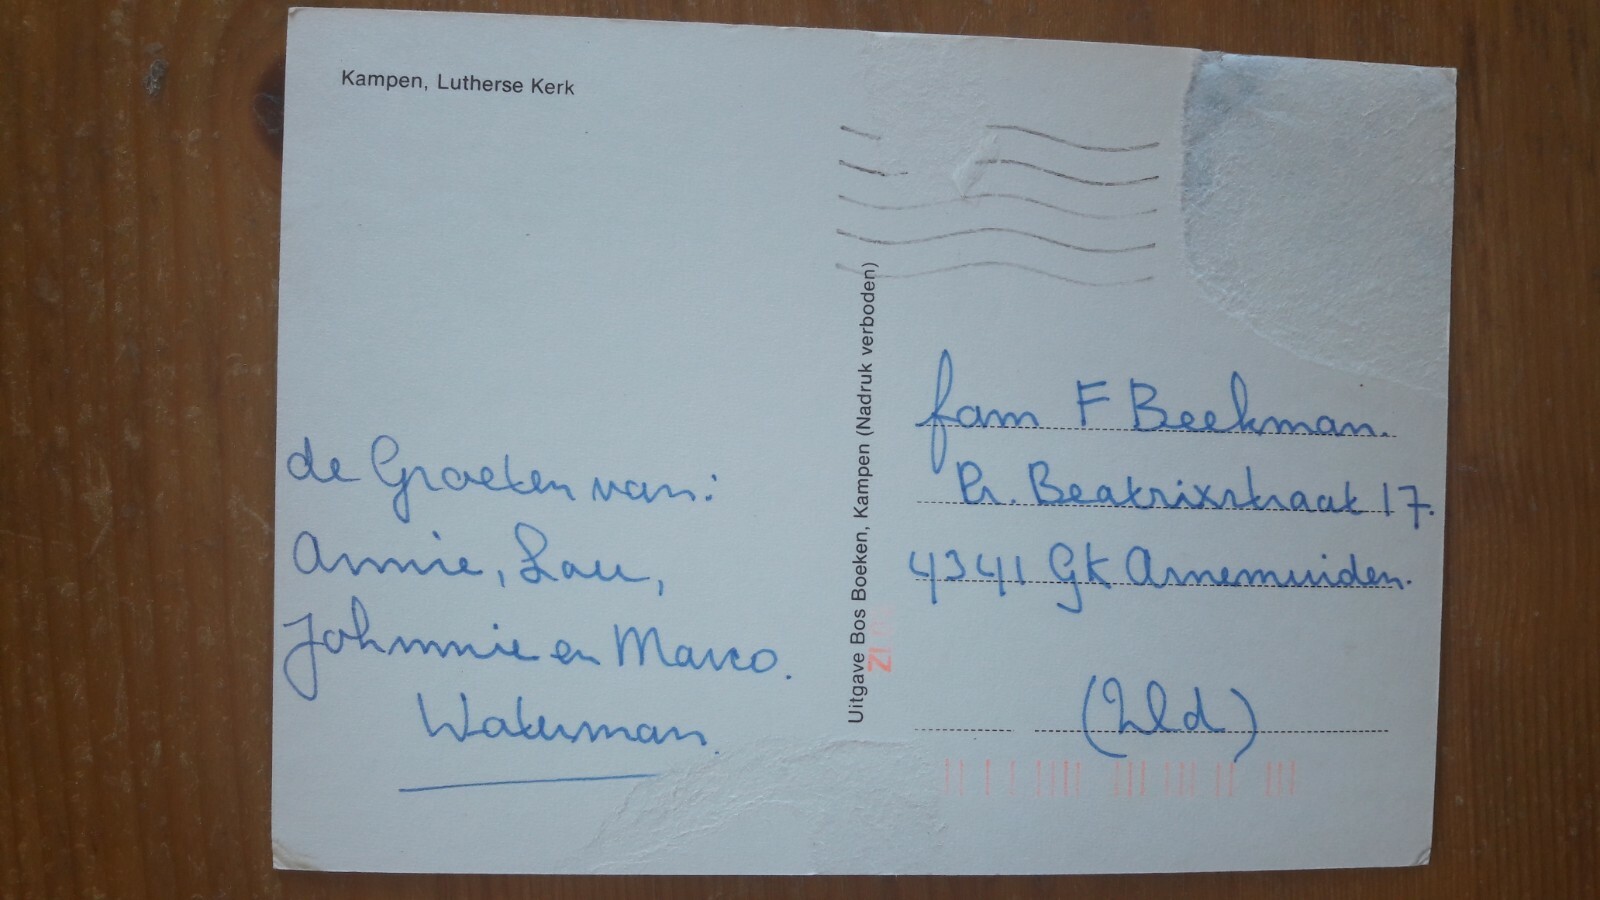 Kampen, Lutherse Kerk
de Groeten van:
Annie, Lou,
Johnnie en Marco.
Waterman.
Uitgave Bos Boeken, Kampen (Nadruk verboden)
fam F Beekman.
Pr. Beatrixstraat 17.
4341 Gk Arnemuiden.
(Zld)